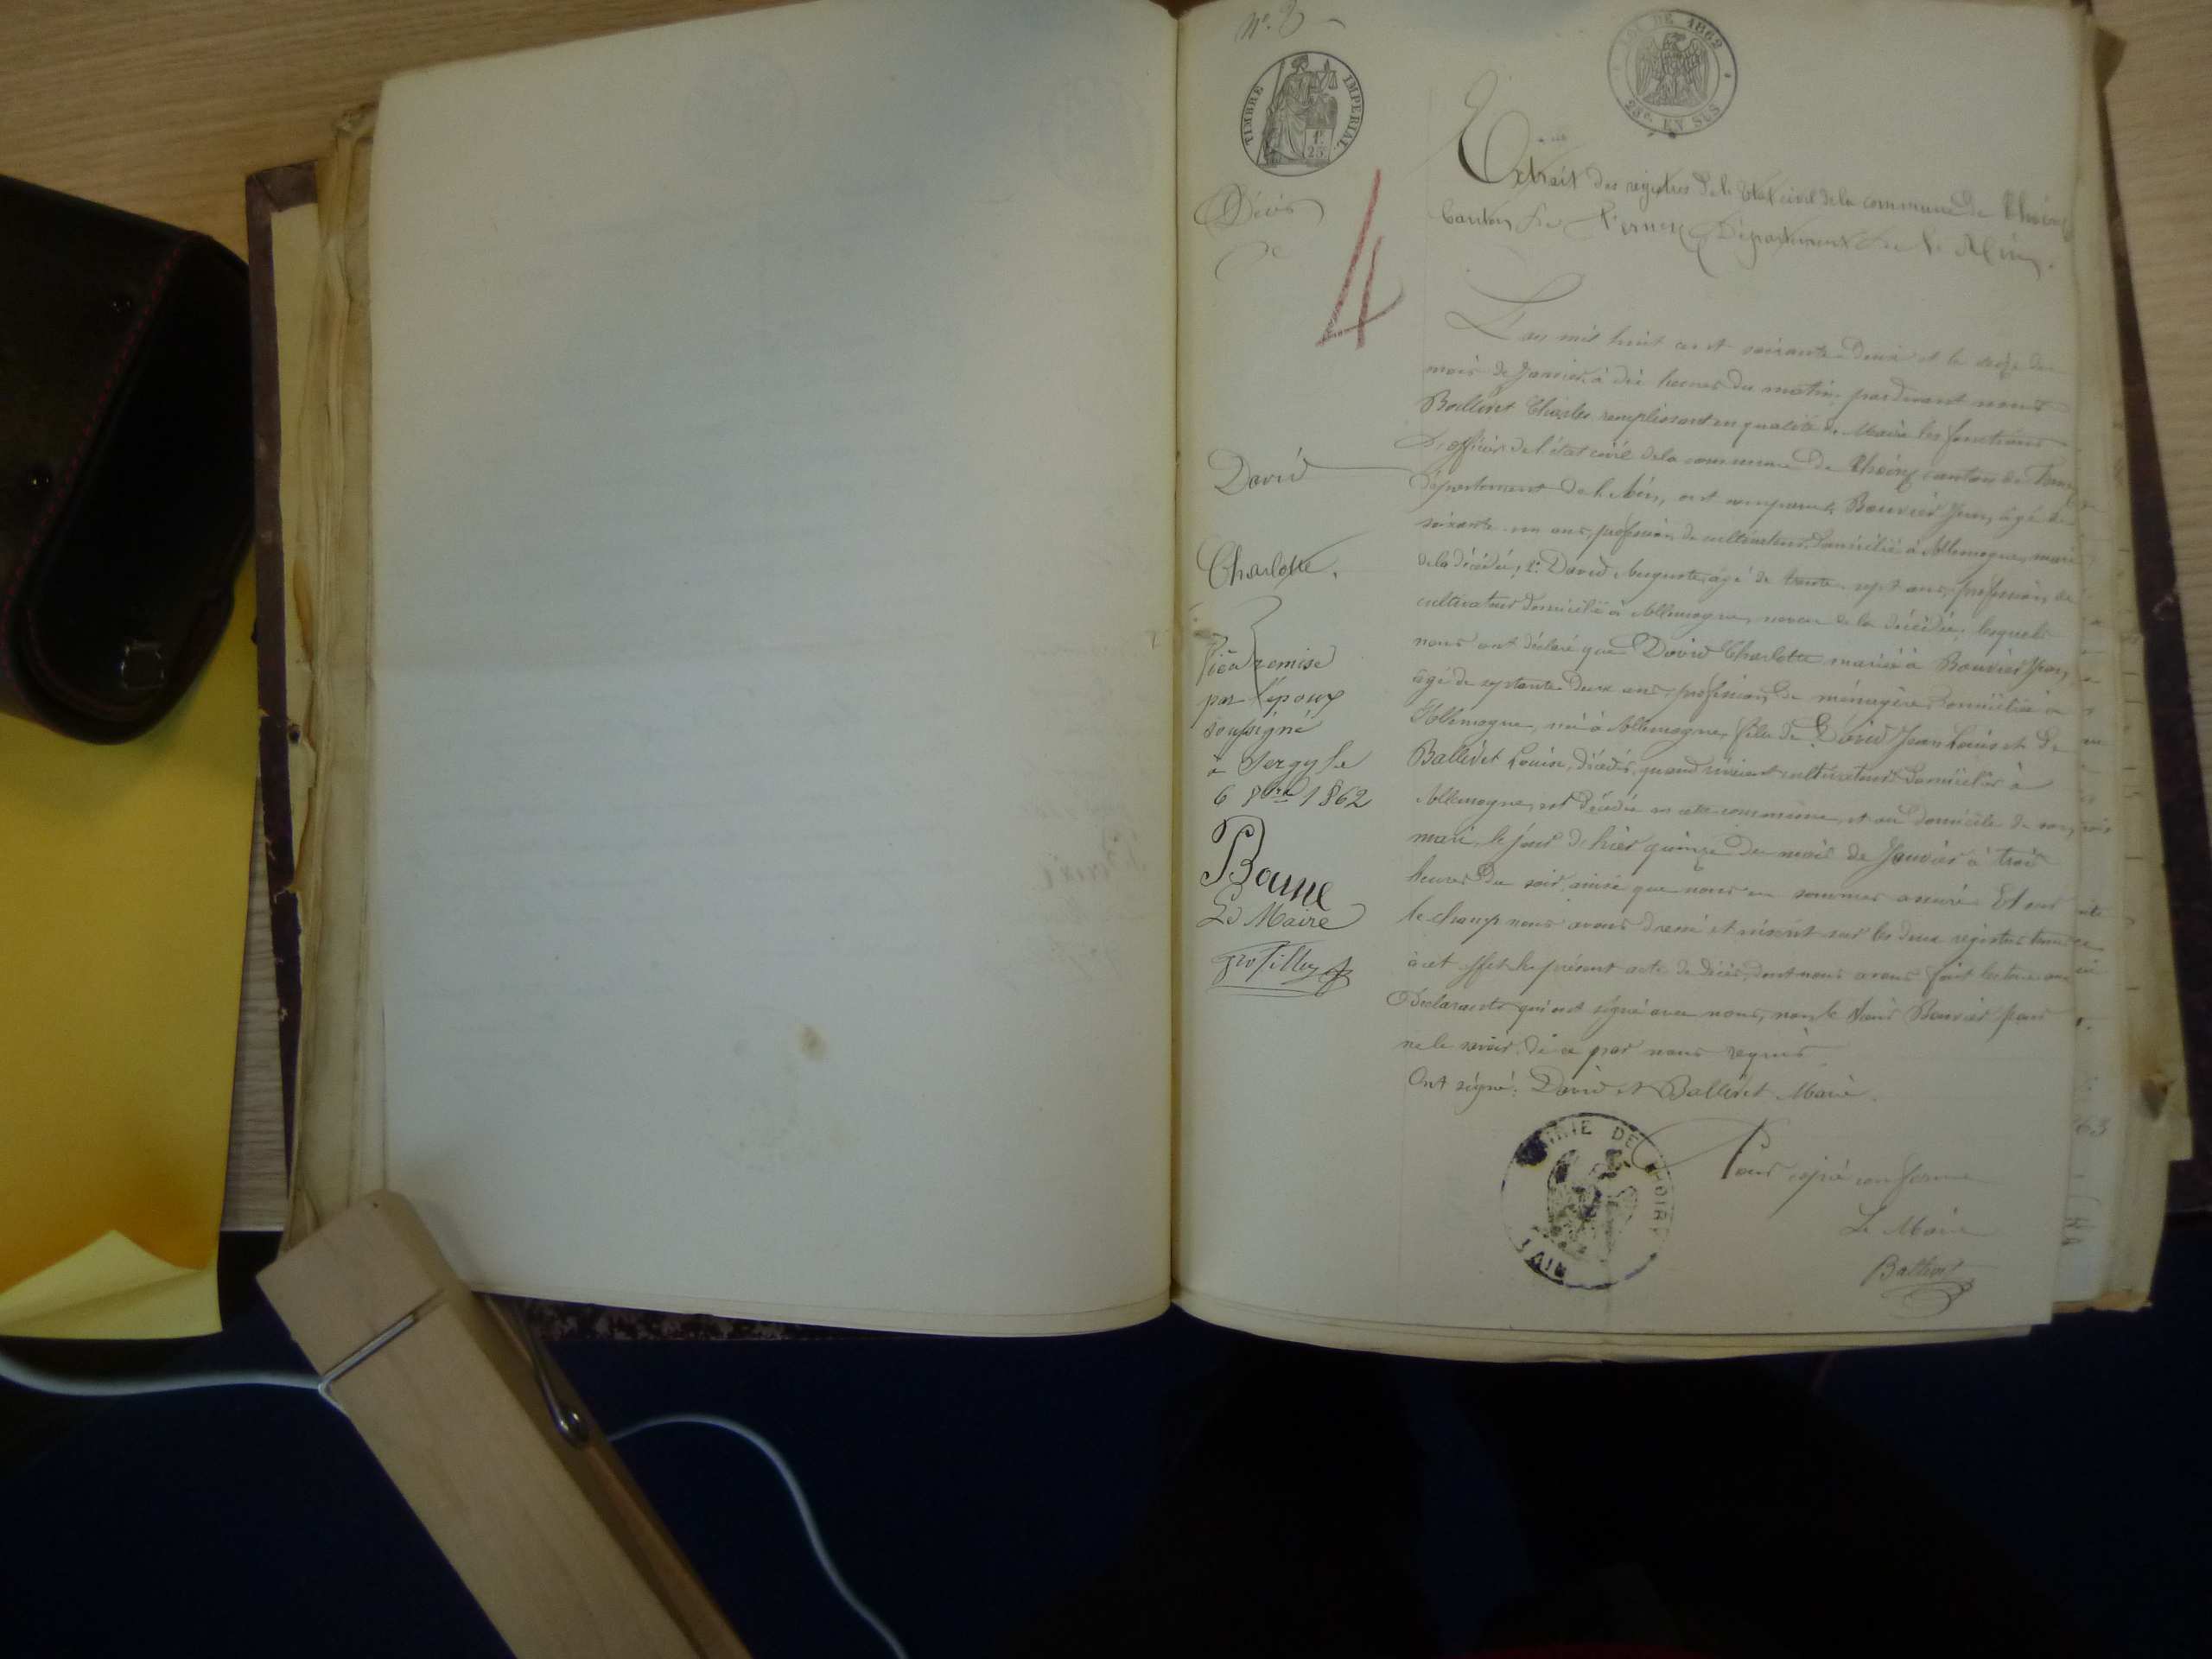 N°. 8
TIMBRE IMPERIAL
1F.
25
LOI DE 1862
25c. EN SUS
Extrait des registres de l'etat civil de la commune de Thoiry
Canton de Ferney Département de l'Ain.
Décès
de
4
David
Charlotte.
L'an mil huit cent soixante-deux et le seize du
mois de Janvier, à dix heures du matin, pardevant nous
Balleret Charles remplissant en qualité de Maire les fonctions
d'officier de l'état civil de la commune de Thoiry canton de Ferney
département de l'Ain, ont comparu Bouvier Jean, âgé de
soixante un ans, profession de cultivateur domicilié à Allemogne, mari
de la décédée; 2° David Auguste, âgé de trente-sept ans, profession de
cultivateur domicilié à Allemogne, neveu de la décédée; lesquels
nous ont déclaré que David Charlotte mariée à Bouvier Jean,
âgé de septante deux ans, profession de ménagère, domiciliée à
Allemogne, né à Allemogne, fille de David Jean Louis et de
Balleret Louise, décédés, quand vivaient cultivateurs domiciliés à
Allemogne, est décédée en cette commune, et au domicile de son
mari, le jour de hier quinze du mois de Janvier à trois
heures du soir, ainsi que nous en sommes assuré. Et sur
le champ nous avons dressé et inscrit sur les deux registres tenus
à cet effet le présent acte de décès, dont nous avons fait lecture aux
Déclarants qui ont signé avec nous, non le sieur Bouvier pour
ne le savoir, de ce par nous requis.
Ont signé: David et Balleret Maire.
Pièce remise
par l'époux
soussigné
à Sergy le
6 8bre 1862
Le Maire
MAIRIE DE THOIRY
(AIN)
Pour copie conforme
Le Maire
Balleret